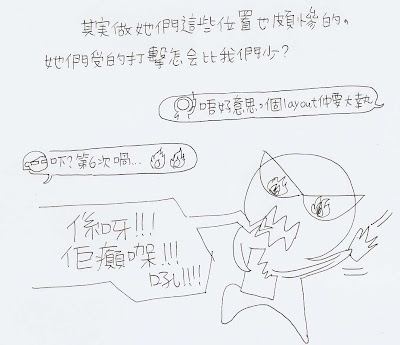 其實做她們這些位置也頗慘的。
她們受的打擊怎会比我們少?
唔好意思。個layout仲要大執
吓?第6次喎...
係呀!!!
佢癲㗎!!!
吼!!!!